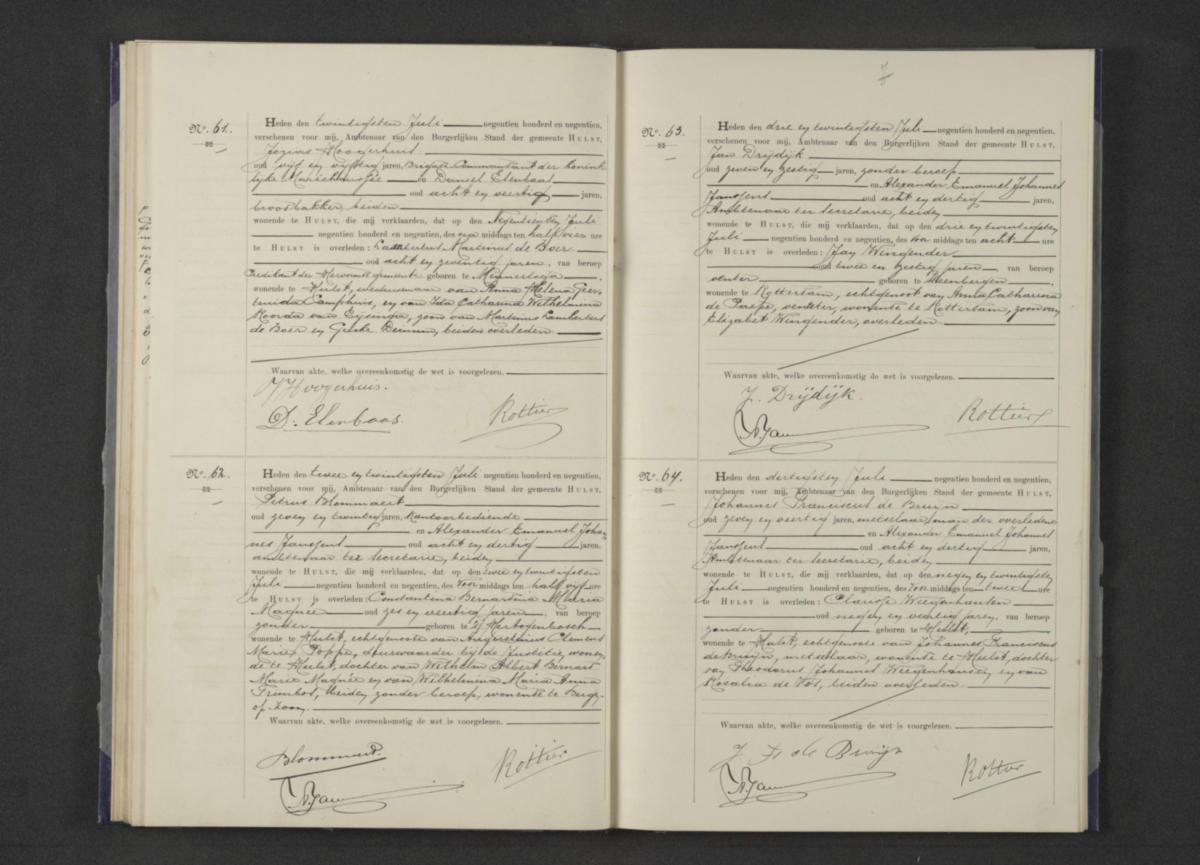 Nº. 61.
Heden den twintigsten Juli negentien honderd en negentien,
verschenen voor mij, Ambtenaar van den Burgerlijken Stand der gemeente HULST,
Hoogerhuis
oud vijf en vijftig jaren, Brigade Commandant der Konink-
lijke Marechaussée en Daniel Elenbaas
oud acht en veertig jaren,
broodbakker, beiden
wonende te HULST, die mij verklaarden, dat op den negentienden Juli
negentien honderd en negentien, des middags ten half vier ure
te HULST is overleden: Lambertus Martinus de Boer
oud acht en zeventig jaren, van beroep
Predikant der Hervormde gemeente geboren te Minnertsga,
wonende te Hulst, weduwnaar van Anna Helena Geer-
truida Camphuis, en van Ida Catharina Wilhelmina
Noorda van Eysinga, zoon van Martinus Lambertus
de Boer en Geiske Deinum, beiden overleden
Waarvan akte, welke overeenkomstig de wet is voorgelezen.
J Hoogerhuis.
D. Elenbaas.
Rottier
Nº. 62.
Heden den twee en twintigsten Juli negentien honderd en negentien,
verschenen voor mij, Ambtenaar van den Burgerlijken Stand der gemeente HULST,
Petrus Blommaert
oud zeven en twintig jaren, Kantoorbediende
en Alexander Emanuel Johan-
nes Janssens oud acht en dertig jaren,
ambtenaar ter secretarie, beiden
wonende te HULST, die mij verklaarden, dat op den twee en twintigsten
Juli negentien honderd en negentien, des voor middags ten half vijf ure
te HULST is overleden: Constantina Bernardina Maria
Magnée oud zes en veertig jaren, van beroep
zonder geboren te 's Hertogenbosch
wonende te Hulst, echtgenoote van Clemens
Marie Poppe, deurwaarder bij de Justitie, wonen-
de te Hulst, dochter van Wilhelm Albert Bernard
Marie Magnée en van Wilhelmina Maria Anna
Trimbos, beiden zonder beroep, wonende te Berg-
op-Zoom.
Waarvan akte, welke overeenkomstig de wet is voorgelezen.
Blommaert.
Rottier
AJans
Nº. 63.
Heden den drie en twintigsten Juli negentien honderd en negentien,
verschenen voor mij, Ambtenaar van den Burgerlijken Stand der gemeente HULST,
Jan Drijdijk
oud zeven en zestig jaren, zonder beroep
en Alexander Emanuel Johannes
Janssens oud acht en dertig jaren,
Ambtenaar ter secretarie, beiden
wonende te HULST, die mij verklaarden, dat op den drie en twintigsten
Juli negentien honderd en negentien, des voor middags ten acht ure
te HULST is overleden: Jan Wingender
oud twee en zestig jaren, van beroep
venter geboren te Steenbergen
wonende te Rotterdam, echtgenoot van Anna Catharina
de Paepe, venster, wonende te Rotterdam, zoon van
Elizabet Wingender, overleden.
Waarvan akte, welke overeenkomstig de wet is voorgelezen.
J. Drijdijk.
Rottier
AJans
Nº. 64.
Heden den dertigsten Juli negentien honderd en negentien,
verschenen voor mij, Ambtenaar van den Burgerlijken Stand der gemeente HULST,
Johannes Franciscus de Bruijn
oud zeven en veertig jaren, metselaar, man der overledene
en Alexander Emanuel Johannes
Janssens oud acht en dertig jaren,
Ambtenaar ter secretarie, beiden
wonende te HULST, die mij verklaarden, dat op den negen en twintigsten
Juli negentien honderd en negentien, des voor middags ten twee ure
te HULST is overleden: Clarisse Weegenhausen
oud negen en veertig jaren, van beroep
zonder geboren te Hulst,
wonende te Hulst, echtgenoote van Johannes Franciscus
de Bruijn, metselaar, wonende te Hulst, dochter
van Theodorus Johannes Weegenhausen en van
Rosalia de Vos, beiden overleden.
Waarvan akte, welke overeenkomstig de wet is voorgelezen.
J F de Bruijn
Rottier
AJans